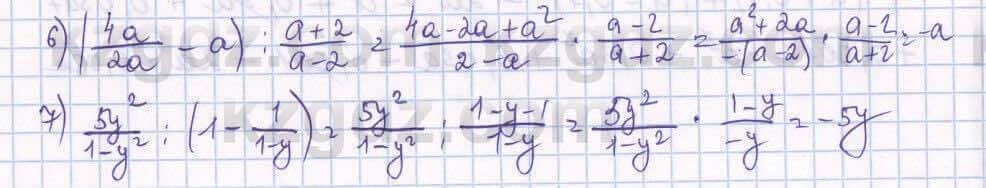 6) (4a/2a - a) : a+2/a-2 = 4a-2a+a²/2-a · a-2/a+2 = a²+2a/-(a-2) · a-2/a+2 = -a
7) 5y²/1-y² : (1 - 1/1-y) = 5y²/1-y² : 1-y-1/1-y = 5y²/1-y² · 1-y/-y = -5y